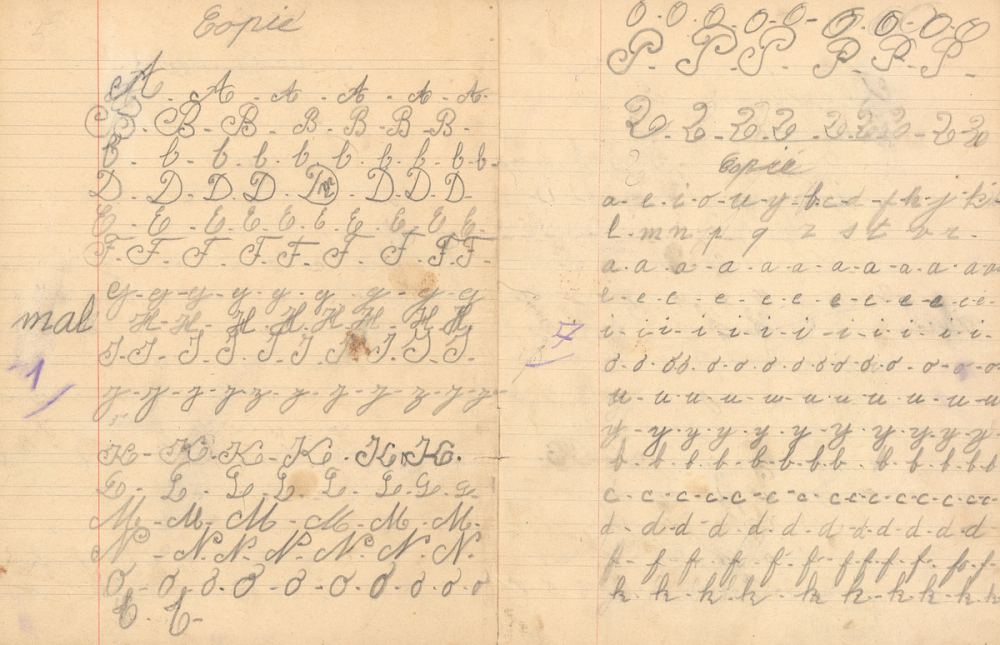 Copie
A. A. A. A. A. A.
B. B. B. B. B. B. B.
b. b. b. b. b. b. b. b. b.
D. D. D. D. D. D. D. D.
E. E. E. E. E. E. E. E. E. E.
F. F. F. F. F. F. F. F.
g-g-g-g-g-g-g-g-g
mal
H-H-H. H. H. H. H. H.
J. J. J. J. J. J. J. J. J. J.
1/
K-K. K. K. K. K.
L. L. L. L. L. L. L. L.
M. M. M. M. M. M.
N. N. N. N. N. N. N.
O. O. O. O. O. O. O. O. O. O.
O. O. O. O. O- O. O. O. O
P. P. P. P. P. P.
2. 2. 2. 2. 2. 2. 2. 2. 2
Copie
a. e. i. o. u. y. b. c. d f h j k
l. m n p q z s t v r.
a. a. a. a. a. a. a. a. a. a. a
e. e. c. e. c. c. e. c. e. e. c. e.
i. i. i. i. i. i. i. i. i. i. i. i.
o. o. o. o. o. o. o. o. o. o. o. o. o. o
7
u-u-u-u-u-u-u-u-u-u
y-y-y-y-y-y-y-y-y-y
b. b. b. b. b. b. b. b. b. b. b. b
c-c-c-c-c-c-c-c-c-c-c-c
d. d. d d. d. d. d d. d. d. d
f. f. f. f. f. f. f. f. f. f. f.
k. k. k. k. k. k. k. k. k. k